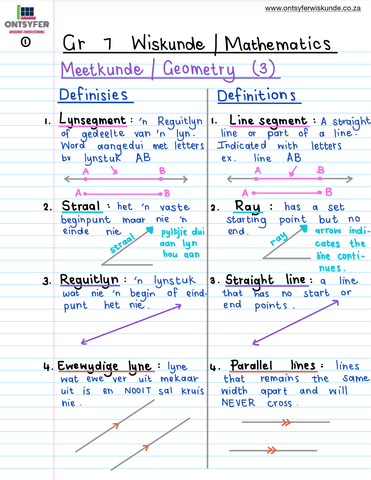 www.ontsyferwiskunde.co.za
ONTSYFER
①
Gr 7 Wiskunde / Mathematics
Meetkunde / Geometry (3)
Definisies
1. Lynsegment : 'n Reguitlyn
of gedeelte van 'n lyn.
Word aangedui met letters
bv lynstuk AB
A B
A B
2. Straal : het 'n vaste
beginpunt maar nie 'n
einde nie.
straal
pyltjie dui
aan lyn
hou aan
3. Reguitlyn : 'n lynstuk
wat nie 'n begin of eind-
punt het nie.
4. Ewewydige lyne : lyne
wat ewe ver uit mekaar
uit is en NOOIT sal kruis
nie.
Definitions
1. Line segment : A straight
line or part of a line.
Indicated with letters
ex. line AB
A B
A B
2. Ray : has a set
starting point but no
end.
ray
arrow indi-
cates the
line conti-
nues.
3. Straight line : a line
that has no start or
end points.
4. Parallel lines : lines
that remains the same
width apart and will
NEVER cross.